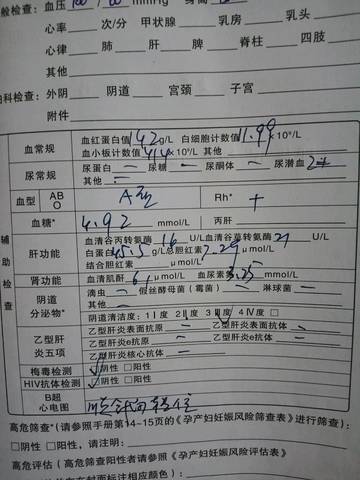 般检查: 血压 mmHg 身高
心率 次/分 甲状腺 乳房 乳头
心律 肺 肝 脾 脊柱 四肢
其他
妇科检查: 外阴 阴道 宫颈 子宫
附件
辅助检查
血常规 血红蛋白值142g/L 白细胞计数值11.99×10⁹/L
血小板计数值414×10⁹/L 其他
尿常规 尿蛋白 — 尿糖 — 尿酮体 — 尿潜血 2+
其他 —
血型 ABO A型 Rh* +
血糖* 4.92 mmol/L 丙肝
肝功能 血清谷丙转氨酶 16 U/L 血清谷草转氨酶 21 U/L
白蛋白 45.5 g/L 总胆红素 7.29 μmol/L
结合胆红素 μmol/L
肾功能 血清肌酐 61 μmol/L 血尿素氮 3.25 mmol/L
阴道分泌物* 滴虫 — 假丝酵母菌(霉菌) — 淋球菌 —
阴道清洁度: 1度 2度 3度 4度 □
乙型肝炎五项 乙型肝炎表面抗原 — 乙型肝炎表面抗体 —
乙型肝炎e抗原 — 乙型肝炎e抗体 —
乙型肝炎核心抗体 —
梅毒检测 阴性 □阳性
HIV抗体检测 阴性 □阳性
B超
心电图
高危筛查*(请参照手册第14-15页的《孕产妇妊娠风险筛查表》进行筛查):
□阴性 □阳性, 请注明:
高危评估(高危筛查阳性者请参照《孕产妇妊娠风险评估表》